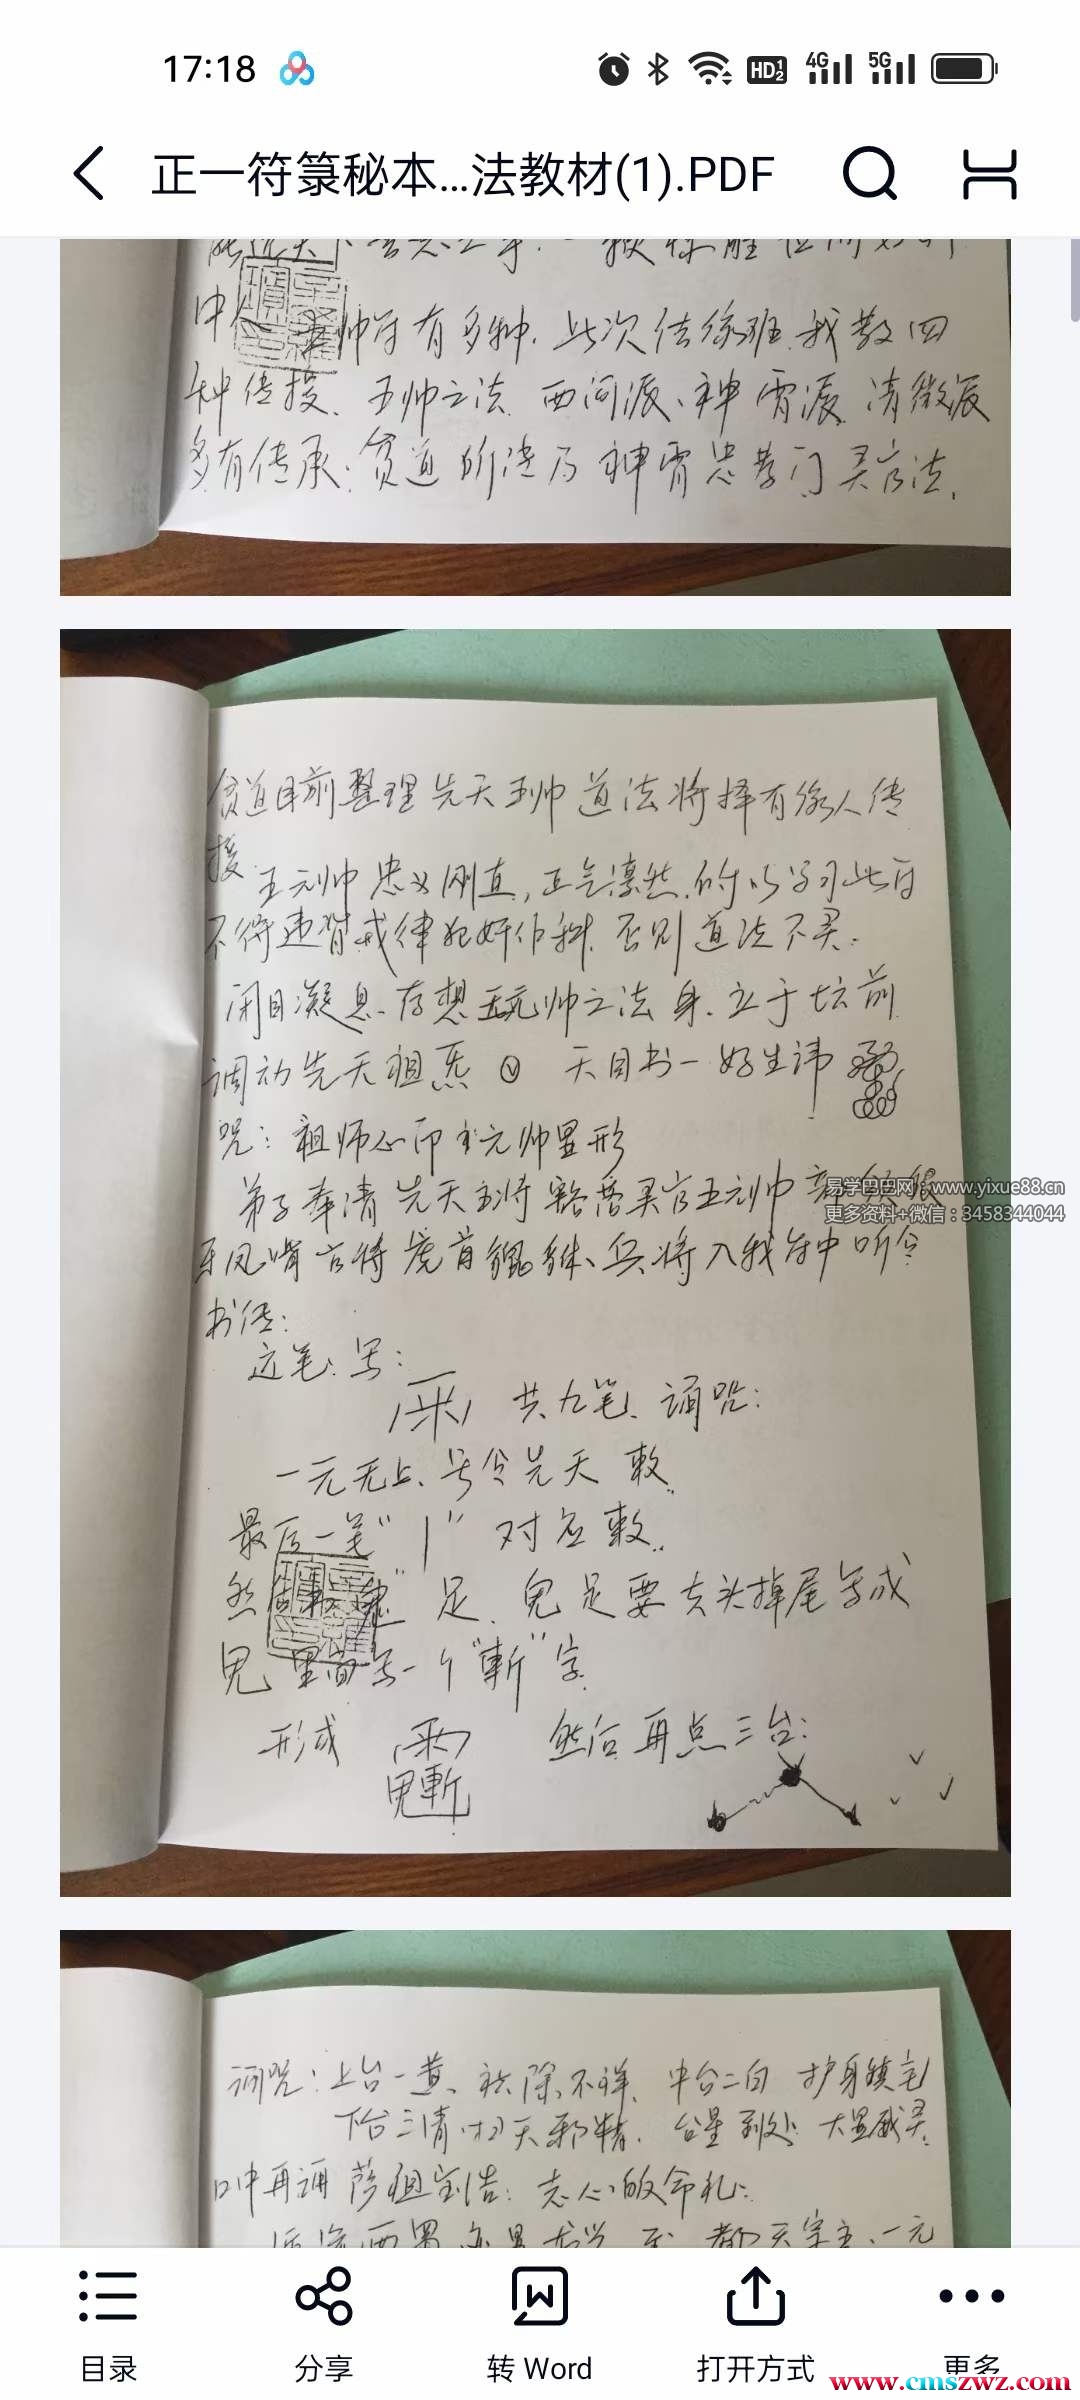 17:18
HD 1 2 4G 5G
正一符箓秘本...法教材(1).PDF
帅符有多种.此次法缘班.我教四
种传授、王帅之法.西河派、神霄派.清微派
多有传承.贫道所传乃神霄忠孝门灵官法.
贫道目前整理先天王帅道法将择有缘人传
授.王元帅忠义刚直,正气凛然.所以学习此符
不得违背戒律犯奸作科.否则道法不灵.
闭目凝息.存想王元帅之法身.立于坛前
调动先天祖炁 天目书一好生讳
咒:祖师心印王元帅显形
弟子奉请先天主将豁落灵官王元帅
凤嘴 虎首貔貅、兵将入我符中听令
书传:
运笔、写:
共九笔、诵咒:
一元无上、号令先天敕
最后一笔"丨"对应敕.
足.鬼足要去头掉尾写成
里面写一个"斬"字.
形成 然后再点三台:
诵咒:上台一黄、祛除不祥.中台二白 护身镇宅
下台三清.扫灭邪精.台星到处 大显威灵.
口中再诵萨祖宝诰:志心皈命礼:
易学巴巴网：www.yixue88.cn
更多资料+微信：3458344044
目录
分享
转 Word
打开方式
更多
www.cmszwz.com